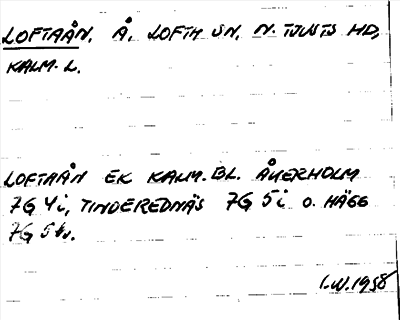 LOFTAÅN, Å, LOFTA SN, N. TJUSTS HD,
KALM. L.
LOFTAÅN EK KALM. BL. ÅKERHOLM
7G 4i, TINDEREDNÄS 7G 5i O. HÄGG
7G 5h.
I.W. 1958